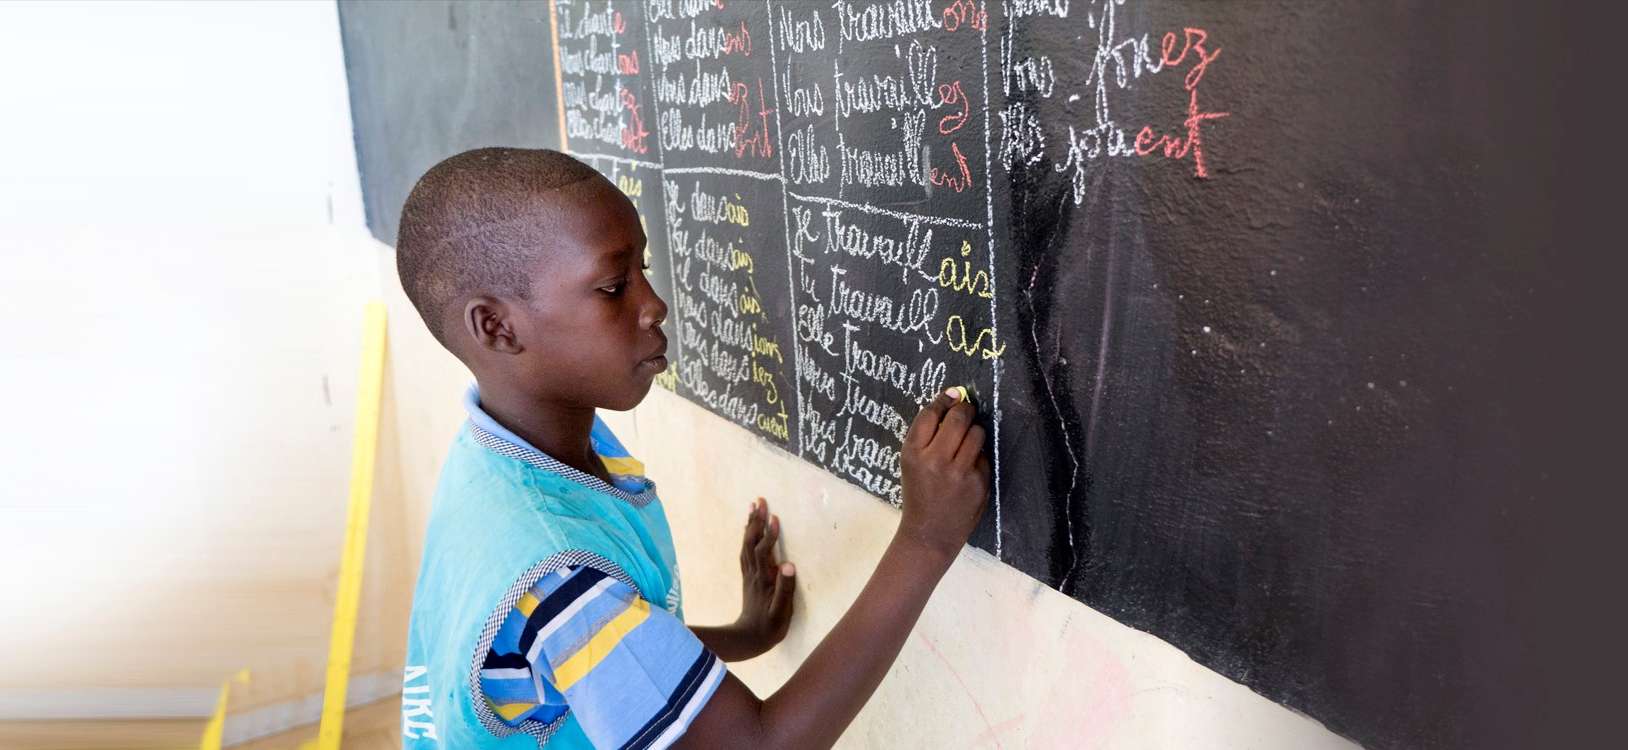 Il chante
Nous chantons
Vous chantez
Elles chantent
Nous dansons
Vous dansez
Elles dansent
Nous travaillons
Vous travaillez
Elles travaillent
Vous jouez
Ils jouent
ais
Je dansais
Tu dansais
Il dansais
Nous dansions
Vous dansiez
Elles dansaient
Je travaillais
Tu travaillas
Elle travaill
Nous trava
Vous trava
Ils trava
NIKE